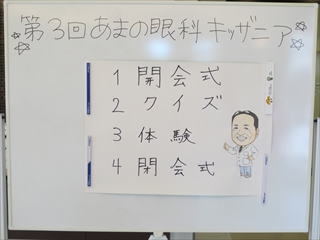 第3回あまの眼科キッザニア
1 開会式
2 クイズ
3 体験
4 閉会式